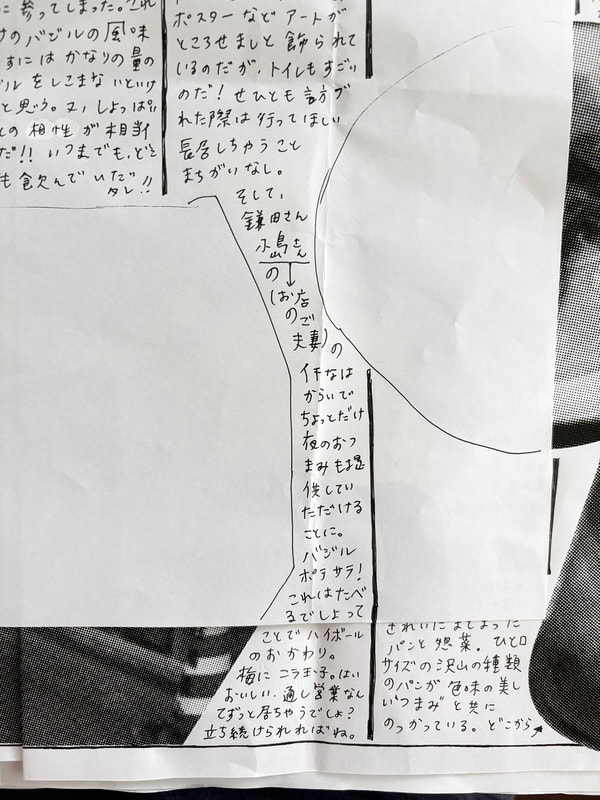 に参ってしまった。これ
けのバジルの風味
すにはかなりの量の
ルをしこまないといけ
と思う。又、しょっぱい
との相性が相当
だ!!いつまでも、どこ
も飲んでいただ
タレ!!
ポスターなどアートが
ところせましと飾られて
いるのだが、トイレもすごい
のだ!ぜひとも訪ず
れた際は行ってほしい
長居しちゃうこと
まちがいなし。
そして、
鎌田さん
小島さん
の↓
(お店
のご
夫妻)の
イキなは
からいで
ちょっとだけ
夜のおつ
まみも提
供してい
ただける
ことに。
バジル
ポテサラ!
これはたべ
るでしょって
ことでハイボール
のおかわり。
梅にニラ玉子。はい
おいしい、通し営業なん
てずっと居ちゃうでしょ?
立ち続けられればね。
きれいに
パンと惣菜。ひと口
サイズの沢山の種類
のパンが色味の美し
い"つまみ"と共に
のっかっている。どこから